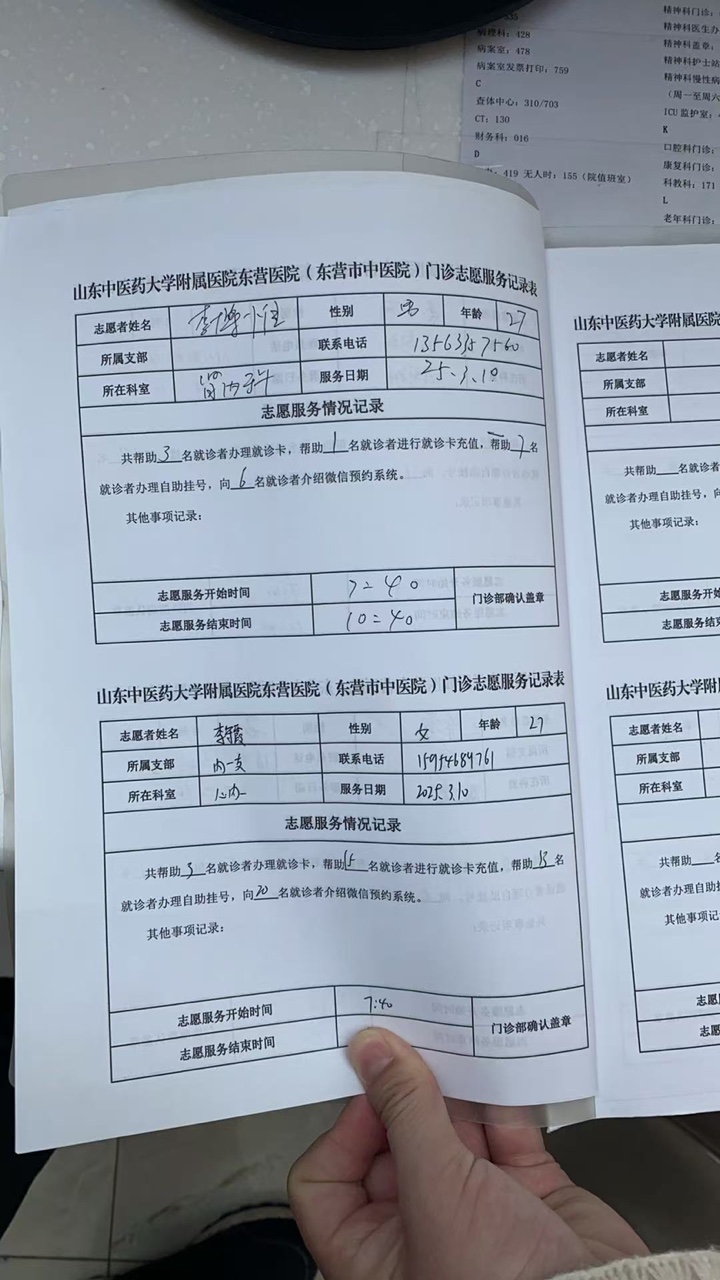 535
病理科：428
病案室：478
病案室发票打印：759
C
查体中心：310/703
CT：130
财务科：016
D
419 无人时：155（院值班室）
精神科门诊：
精神科医生办
精神科盖章：
精神科护士站
精神科慢性病
（周一至周六
ICU 监护室：
K
口腔科门诊：
康复科门诊：
科教科：171
L
老年科门诊：
山东中医药大学附属医院东营医院（东营市中医院）门诊志愿服务记录表
志愿者姓名 性别 男 年龄 27
所属支部 联系电话 13563157560
所在科室 肾内科 服务日期 25.3.10
志愿服务情况记录
共帮助3名就诊者办理就诊卡，帮助1名就诊者进行就诊卡充值，帮助7名
就诊者办理自助挂号，向6名就诊者介绍微信预约系统。
其他事项记录：
志愿服务开始时间 7：40 门诊部确认盖章
志愿服务结束时间 10：40
山东中医药大学附属医院东营医院（东营市中医院）门诊志愿服务记录表
志愿者姓名 李霞 性别 女 年龄 27
所属支部 内一支 联系电话 15954689761
所在科室 心内一 服务日期 2025.3.10
志愿服务情况记录
共帮助3名就诊者办理就诊卡，帮助15名就诊者进行就诊卡充值，帮助13名
就诊者办理自助挂号，向20名就诊者介绍微信预约系统。
其他事项记录：
志愿服务开始时间 7:40 门诊部确认盖章
志愿服务结束时间
山东中医药大学附属医院
志愿者姓名
所属支部
所在科室
共帮助 名就诊者
就诊者办理自助挂号，向
其他事项记录：
志愿服务开
志愿服务结束
山东中医药大学附
志愿者姓名
所属支部
所在科室
共帮助 名
就诊者办理自助挂
其他事项记录
志愿服
志愿